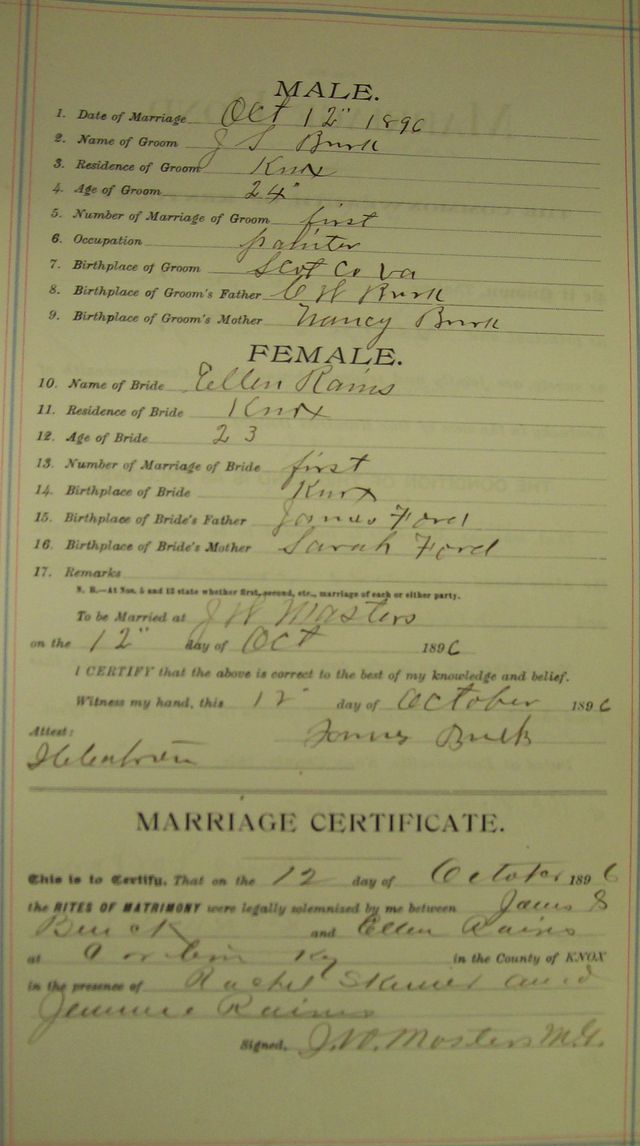 MALE.
1. Date of Marriage Oct 12" 1896
2. Name of Groom J S Burk
3. Residence of Groom Knox
4. Age of Groom 24"
5. Number of Marriage of Groom first
6. Occupation painter
7. Birthplace of Groom Scot Co Va
8. Birthplace of Groom's Father C W Burk
9. Birthplace of Groom's Mother Nancy Burk
FEMALE.
10. Name of Bride Ellen Rains
11. Residence of Bride Knox
12. Age of Bride 23
13. Number of Marriage of Bride first
14. Birthplace of Bride Knox
15. Birthplace of Bride's Father James Ford
16. Birthplace of Bride's Mother Sarah Ford
17. Remarks
N. B.—At Nos. 5 and 13 state whether first, second, etc., marriage of each or either party.
To be Married at J W Masters
on the 12" day of Oct 1896
I CERTIFY that the above is correct to the best of my knowledge and belief.
Witness my hand, this 12" day of October 1896
Attest: Burk
MARRIAGE CERTIFICATE.
This is to Certify, That on the 12 day of October 1896
the RITES OF MATRIMONY were legally solemnized by me between James S
Burk and Ellen Rains
at Ky in the County of KNOX
in the presence of Rachel Skinner and
Jennie Rains
Signed, J.W. Masters M.G.